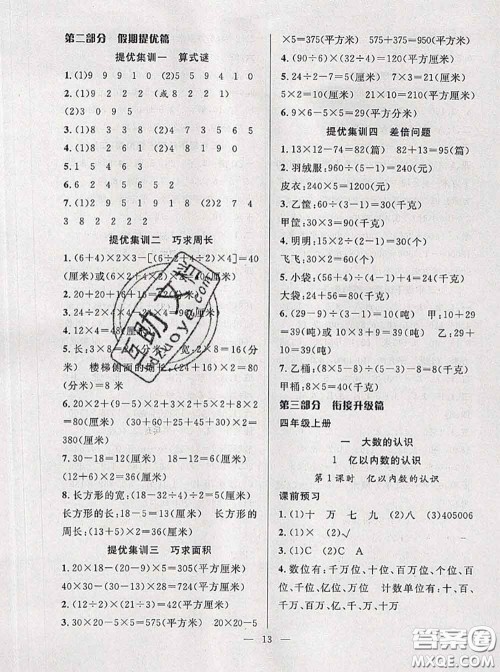 第二部分 假期提优篇
提优集训一 算式谜
1.(1)9 9 9 1 0 (2)5 5 9 4 1 0
2.(1)3 1 2 7 2(或 8 2 2 1)
(2)3 0 9 5
3.(1)8 2 3 1 (2)4 7 3 8 5 6
4.(1)8 9 1 3 (2)5 2 4 5
5.7
6.(1)2 9 9 1 9 1 8 (2)3 4
7.8 2 2 2 2 2 2 2
提优集训二 巧求周长
1.(6+4)×2×3-[(6÷2+4÷2)×4]=
40(厘米)或(6+2+2)×4=40(厘米)
2.20+20+16+
3.20+15+15=50(厘米)
4.12×4=48(厘米)
5.长:3×8=
米) 楼梯侧面的
82(分米)
6.(1+2+3+4+5)×2+6×2=42
(厘米)
7.长方形的宽:(18-2)÷
长方形的长
8.长方形的宽:(32÷4)÷2=4(厘米)
长方形的长:4+5=9(厘米)
(4+9)×2=26(厘米)
提优集训三 巧求面积
1.20×18-(20-9)×5=305(平方厘米)
40×30-(28-4)×10=960(平方厘米)
2.30×24-(30-6)×(24-4)=240(平
方米)
3.30×20-5×5=575(平方米) 20×20-5
×5=375(平方米) 575+375=950(平方米)
4.(90÷2)×(90÷3)=1350(平方米)
5.32÷8=4(厘米) 4÷2=2(厘米)
5×2=10(厘米) 21×10=210(平方厘米)
6.9×6-5×5=29(平方分米)
提优集训四 差倍问题
1.13×12-74=82(篇) 82+13=95(篇)
2.羽绒服:960÷(5-1)=240(元)
皮衣:240×5=1200(元)
3.乙筐:(40-20)÷(3-1)+20=30(千克)
甲筐:30+30=60(千克)
4.明明:20÷(2-1)-5=15(元)
飞飞:15+20=35(元)
5.小袋:(56+14)÷(3-1)=35(千克)
大袋:35+56=91(千克)
6.(29-10)÷(2-1)-10=9(吨) 甲:10+
29=39(吨)或10+9=19(吨) 乙:29+
10=39(吨)
7.乙桶:(8×2)÷(3-1)+8=16(千克)
甲桶:16+8×2=32(千克)
第三部分 衔接升级篇
四年级上册
一 大数的认识
1 亿以内数的认识
第1课时 亿以内数的认识
课前预习
1.(1)十 万 七 九 (2)八 (3)405006
2.(1)× (2)√
3.(1)B (2)C (3)A
4.数位有:千万位,十位,百万位,个位,千位,
十万位,百位,万位 计数单位有:十,百,
千,万,十万,百万,千万
13
互助文学
答案圈
MXQE.COM